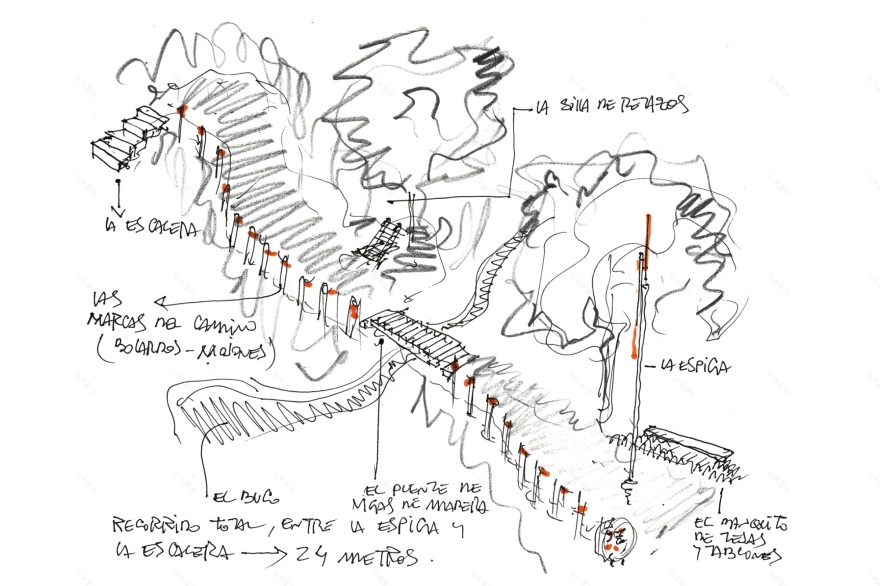 LA SILLA DE RETAZOS
LA ESCALERA
LAS
MARCAS DEL CAMINO
(BOLARDOS - MOJONES)
LA ESPIGA
EL BUCO
EL PUENTE DE
VIGAS DE MADERA
EL BANQUITO
DE TEJAS
Y TABLONES
RECORRIDO TOTAL, ENTRE LA ESPIGA Y
LA ESCALERA → 24 METROS.